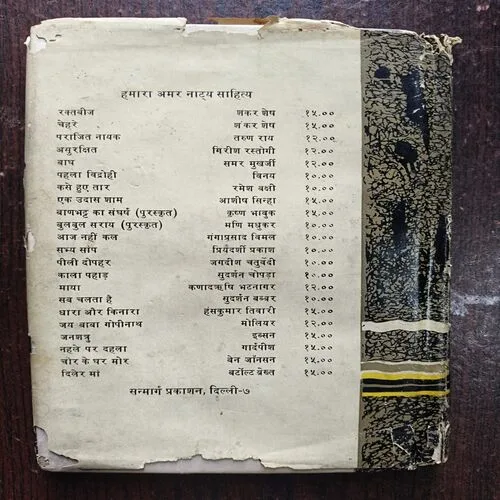 हमारा अमर नाट्य साहित्य
रक्तबीज शंकर शेष १५.००
चेहरे शंकर शेष १५.००
पराजित नायक तरुण राय १२.००
असुरक्षित गिरीश रस्तोगी १२.००
बाघ समर मुखर्जी १२.००
पहला विद्रोही विनय १०.००
कसे हुए तार रमेश बक्षी १०.००
एक उदास शाम आशीष सिन्हा १५.००
बाणभट्ट का संघर्ष (पुरस्कृत) कृष्ण भावुक १५.००
बुलबुल सराय (पुरस्कृत) मणि मधुकर १०.००
आज नहीं कल गंगाप्रसाद विमल १०.००
सभ्य सांप प्रियदर्शी प्रकाश १०.००
पीली दोपहर जगदीश चतुर्वेदी १०.००
काला पहाड़ सुदर्शन चोपड़ा १०.००
माया कणादऋषि भटनागर १२.००
सब चलता है सुदर्शन बब्बर १०.००
धारा और किनारा हंसकुमार तिवारी १५.००
जय बाबा गोपीनाथ मोलियर १२.००
जनशत्रु इब्सन १५.००
नहले पर दहला गार्दपीश १५.००
चोर के घर मोर बेन जॉनसन १५.००
दिलेर मां बर्टोल्ट ब्रेख्त १५.००
सन्मार्ग प्रकाशन, दिल्ली-७